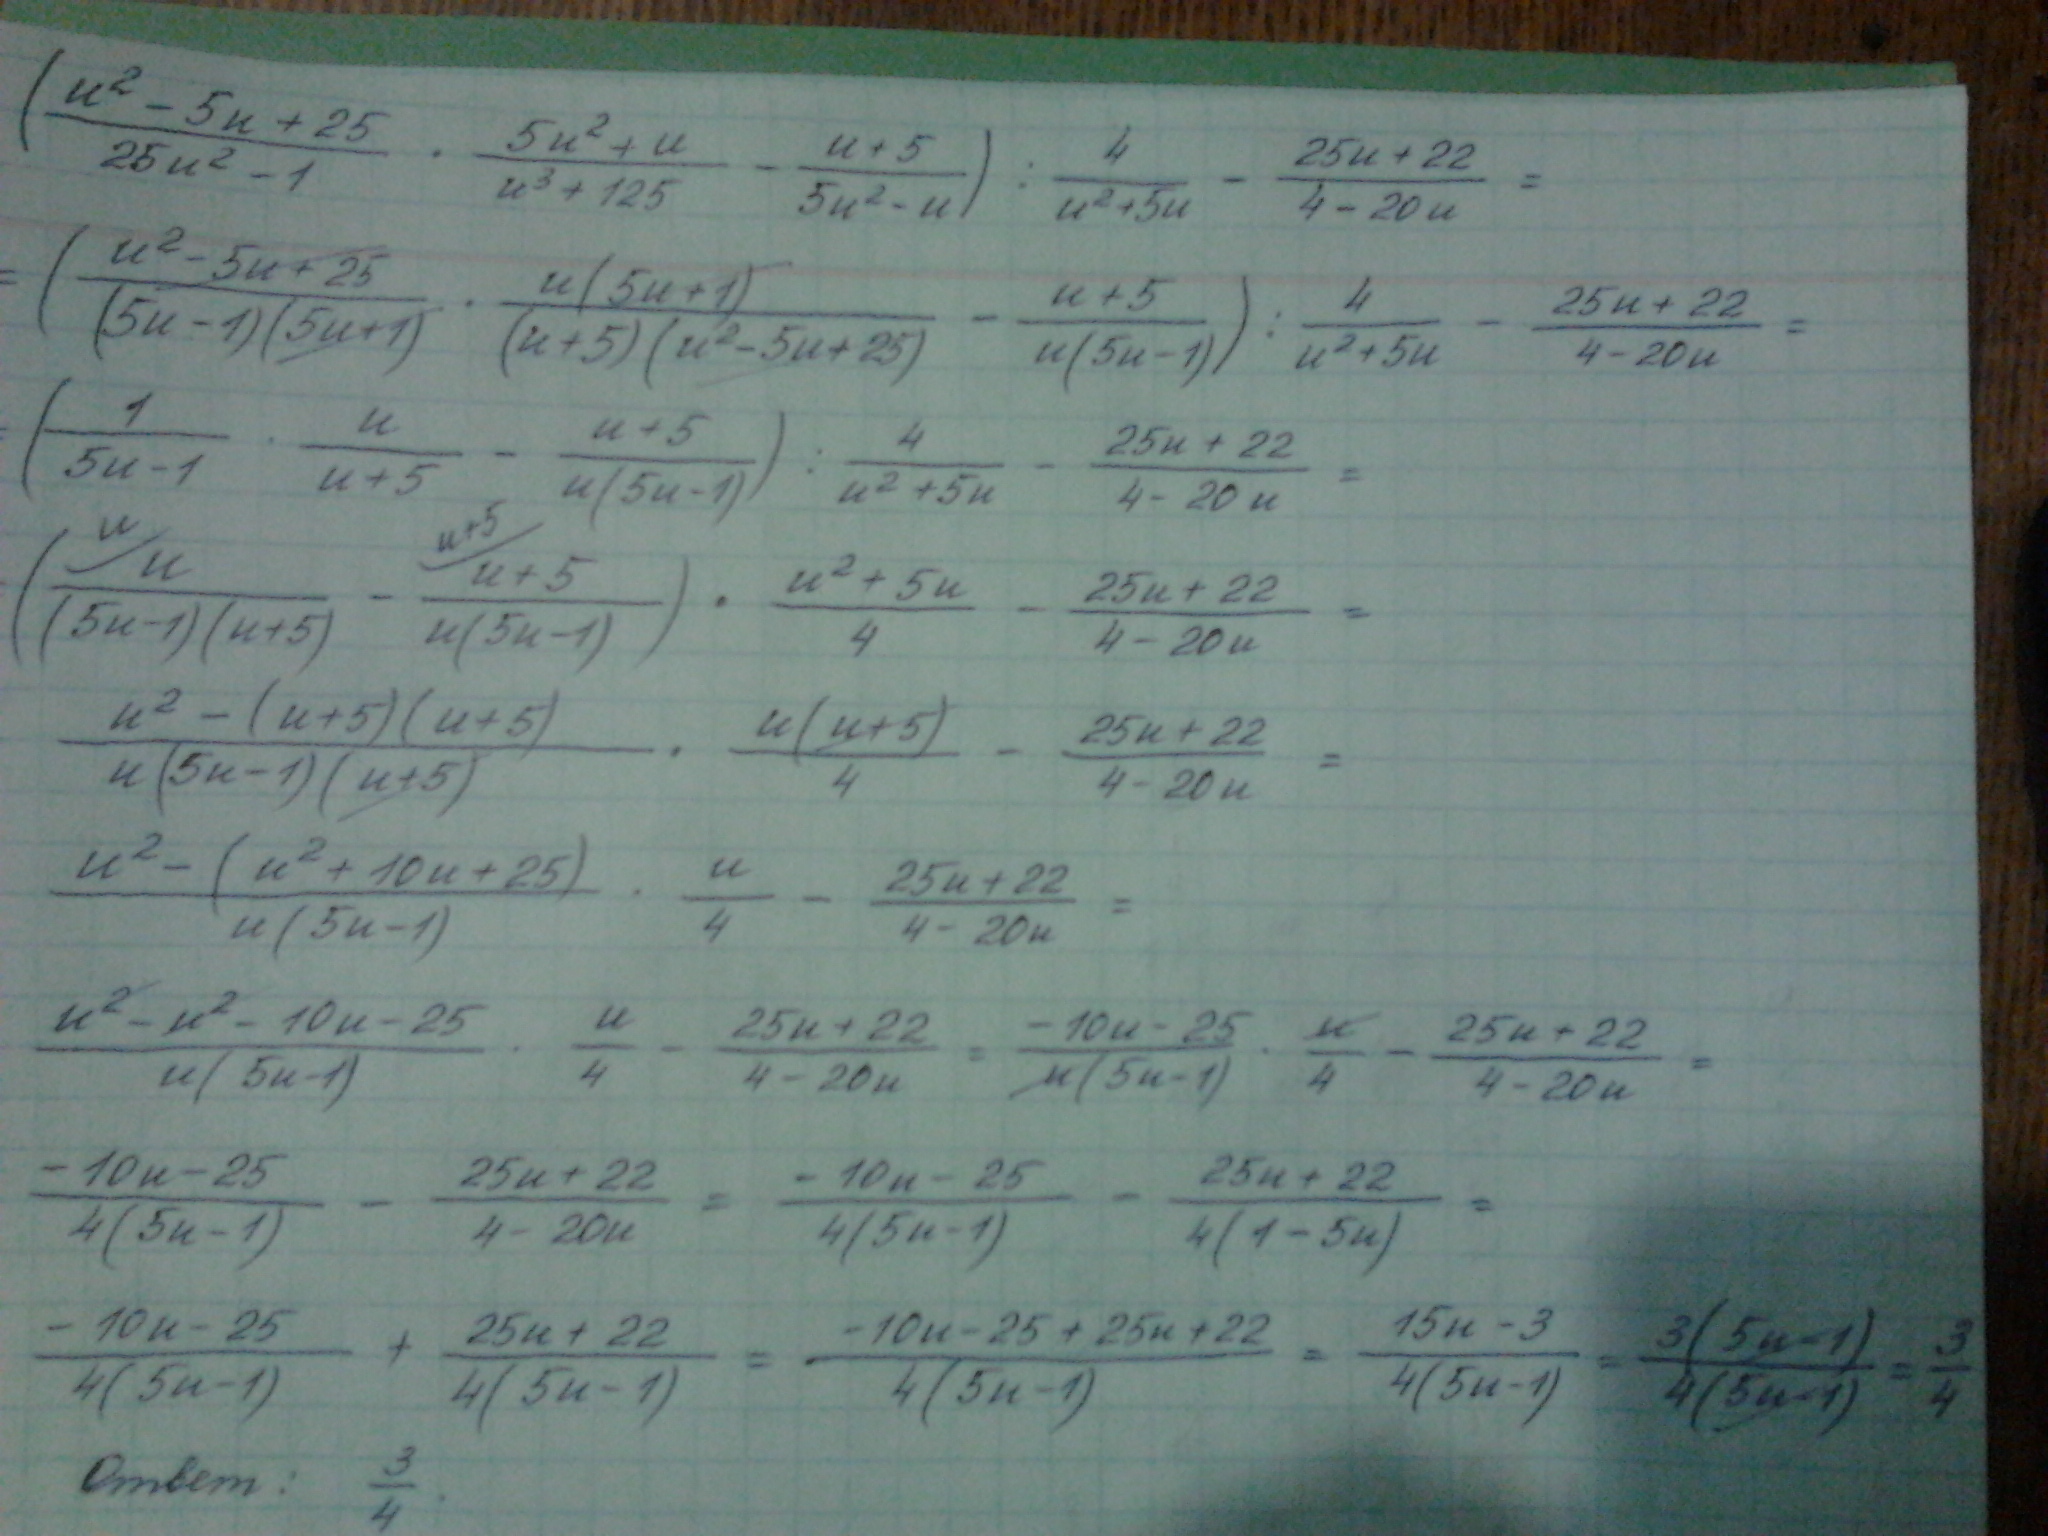 (u² - 5u + 25)/(25u² - 1) · (5u² + u)/(u³ + 125) - (u + 5)/(5u² - u)) : 4/(u² + 5u) - (25u + 22)/(4 - 20u) =
= ((u² - 5u + 25)/((5u - 1)(5u + 1)) · u(5u + 1)/((u + 5)(u² - 5u + 25)) - (u + 5)/(u(5u - 1))) : 4/(u² + 5u) - (25u + 22)/(4 - 20u) =
= (1/(5u - 1) · u/(u + 5) - (u + 5)/(u(5u - 1))) : 4/(u² + 5u) - (25u + 22)/(4 - 20u) =
= (u\ u/((5u - 1)(u + 5)) - u+5\ (u + 5)/(u(5u - 1))) · (u² + 5u)/4 - (25u + 22)/(4 - 20u) =
(u² - (u + 5)(u + 5))/(u(5u - 1)(u + 5)) · u(u + 5)/4 - (25u + 22)/(4 - 20u) =
(u² - (u² + 10u + 25))/(u(5u - 1)) · u/4 - (25u + 22)/(4 - 20u) =
(u² - u² - 10u - 25)/(u(5u - 1)) · u/4 - (25u + 22)/(4 - 20u) = (-10u - 25)/(u(5u - 1)) · u/4 - (25u + 22)/(4 - 20u) =
(-10u - 25)/(4(5u - 1)) - (25u + 22)/(4 - 20u) = (-10u - 25)/(4(5u - 1)) - (25u + 22)/(4(1 - 5u)) =
(-10u - 25)/(4(5u - 1)) + (25u + 22)/(4(5u - 1)) = (-10u - 25 + 25u + 22)/(4(5u - 1)) = (15u - 3)/(4(5u - 1)) = 3(5u - 1)/(4(5u - 1)) = 3/4
Ответ: 3/4.